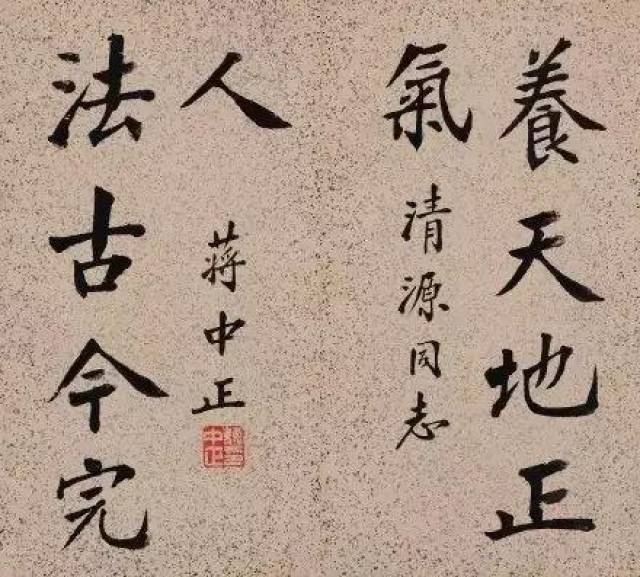 養天地正
氣 清源同志
法古今完
人 蔣中正